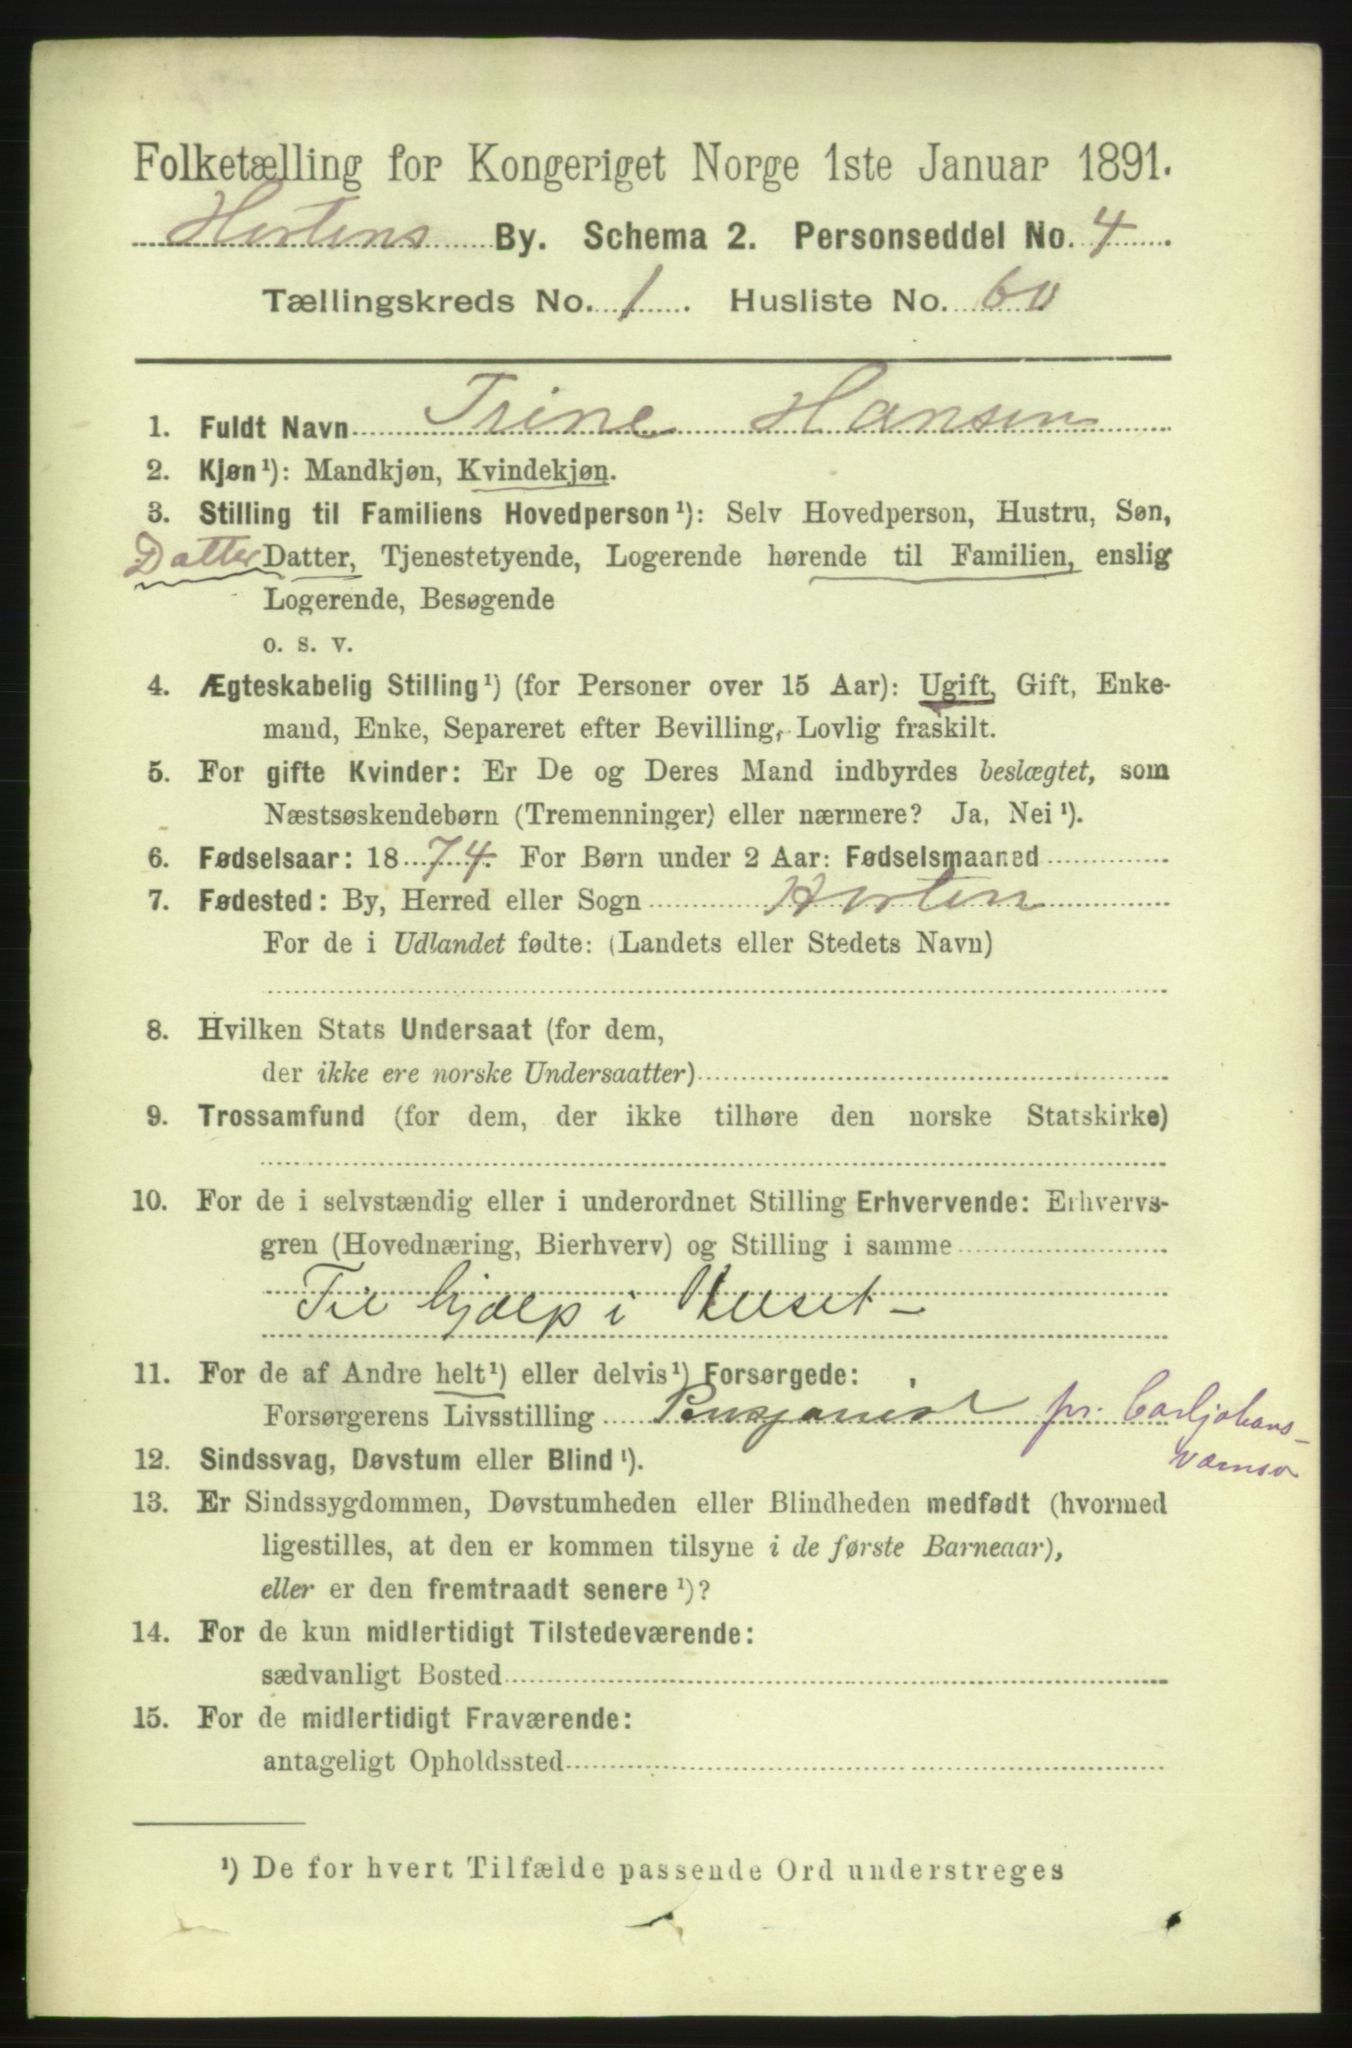 Folketælling for Kongeriget Norge 1ste Januar 1891.
Hortens By. Schema 2. Personseddel No. 4
Tællingskreds No. 1. Husliste No. 60
1. Fuldt Navn Trine Hansen
2. Kjøn¹): Mandkjøn, Kvindekjøn.
3. Stilling til Familiens Hovedperson¹): Selv Hovedperson, Hustru, Søn,
Datter Datter, Tjenestetyende, Logerende hørende til Familien, enslig
Logerende, Besøgende
o. s. v.
4. Ægteskabelig Stilling¹) (for Personer over 15 Aar): Ugift, Gift, Enke-
mand, Enke, Separeret efter Bevilling, Lovlig fraskilt.
5. For gifte Kvinder: Er De og Deres Mand indbyrdes beslægtet, som
Næstsøskendebørn (Tremenninger) eller nærmere? Ja, Nei¹).
6. Fødselsaar: 1874. For Børn under 2 Aar: Fødselsmaaned
7. Fødested: By, Herred eller Sogn Horten
For de i Udlandet fødte: (Landets eller Stedets Navn)
8. Hvilken Stats Undersaat (for dem,
der ikke ere norske Undersaatter)
9. Trossamfund (for dem, der ikke tilhøre den norske Statskirke)
10. For de i selvstændig eller i underordnet Stilling Erhvervende: Erhvervs-
gren (Hovednæring, Bierhverv) og Stilling i samme
Til hjælp i Huset -
11. For de af Andre helt¹) eller delvis¹) Forsørgede:
Forsørgerens Livsstilling Pensjonist fr. Carljohans-
værnso
12. Sindssvag, Døvstum eller Blind¹).
13. Er Sindssygdommen, Døvstumheden eller Blindheden medfødt (hvormed
ligestilles, at den er kommen tilsyne i de første Barneaar),
eller er den fremtraadt senere¹)?
14. For de kun midlertidigt Tilstedeværende:
sædvanligt Bosted
15. For de midlertidigt Fraværende:
antageligt Opholdssted
¹) De for hvert Tilfælde passende Ord understreges